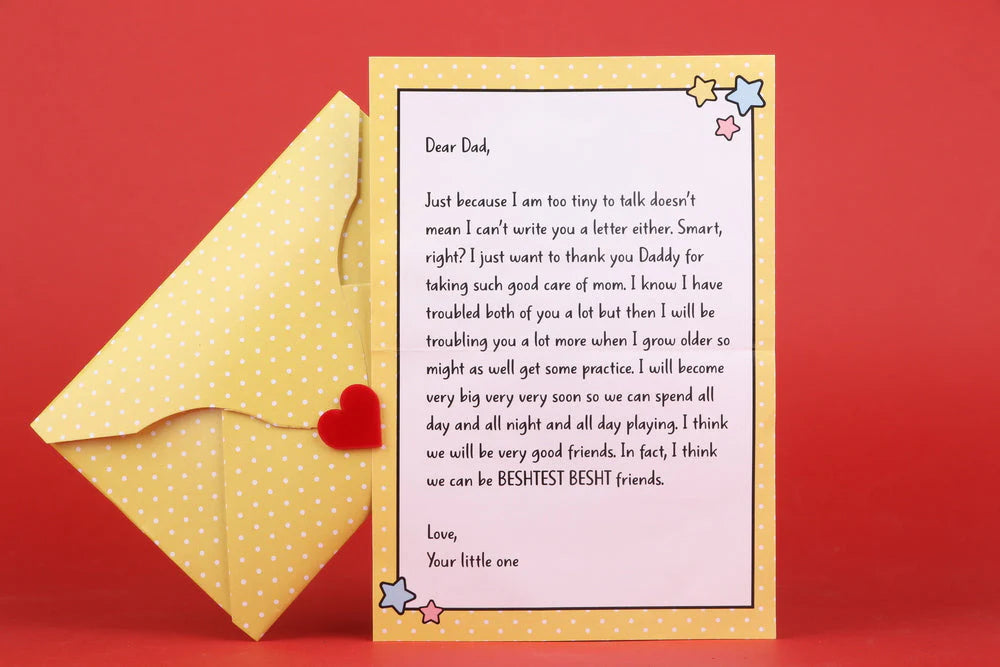 Dear Dad,
Just because I am too tiny to talk doesn't
mean I can't write you a letter either. Smart,
right? I just want to thank you Daddy for
taking such good care of mom. I know I have
troubled both of you a lot but then I will be
troubling you a lot more when I grow older so
might as well get some practice. I will become
very big very very soon so we can spend all
day and all night and all day playing. I think
we will be very good friends. In fact, I think
we can be BESHTEST BESHT friends.
Love,
Your little one